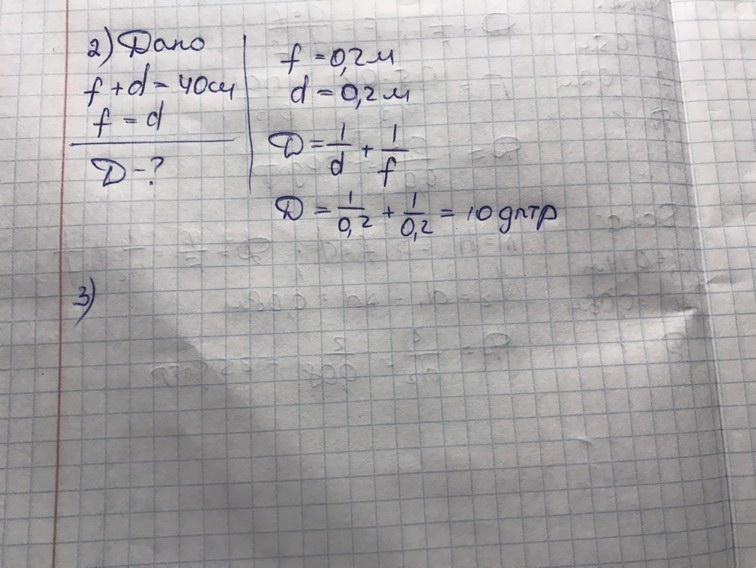 2) Дано
f + d = 40см
f = d
D - ?
f = 0,2 м
d = 0,2 м
D = 1/d + 1/f
D = 1/0,2 + 1/0,2 = 10 дптр
3)